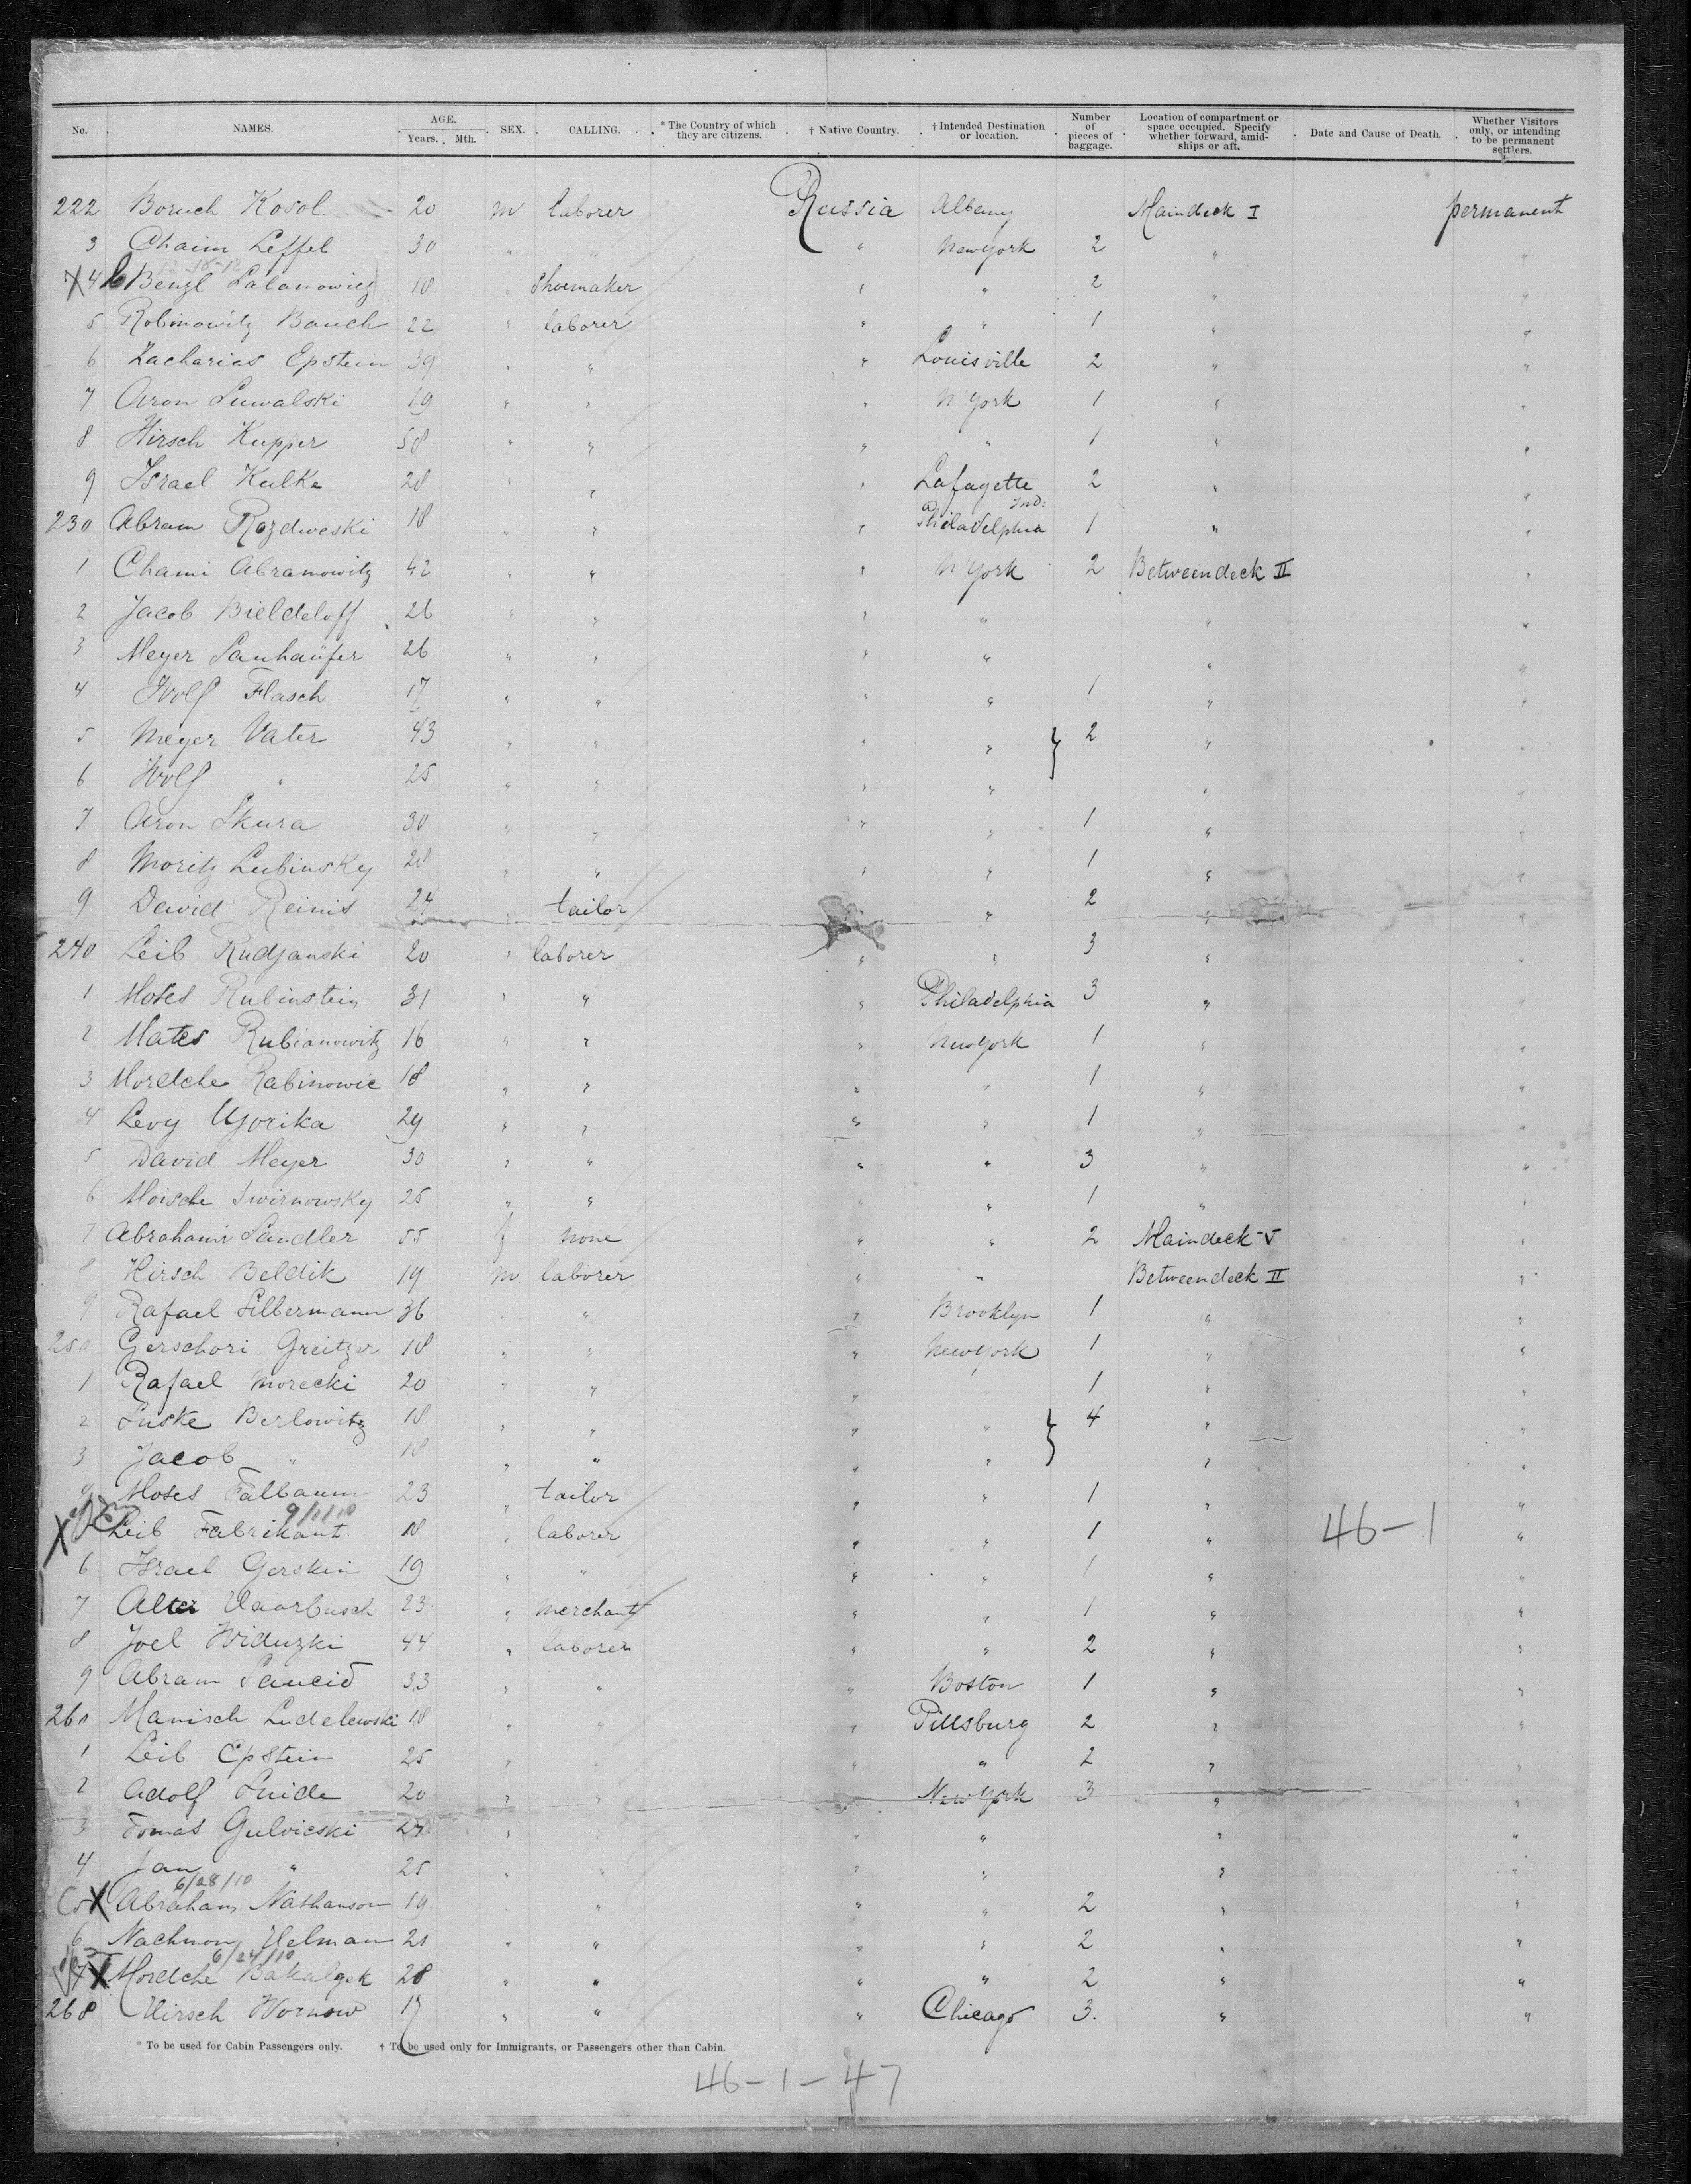 No. NAMES. AGE. Years. Mth. SEX. CALLING. * The Country of which they are citizens. † Native Country. † Intended Destination or location. Number of pieces of baggage. Location of compartment or space occupied. Specify whether forward, amidships or aft. Date and Cause of Death. Whether Visitors only, or intending to be permanent settlers.
222 Boruch Kosol 20 m laborer Russia Albany Maindeck I permanent
3 Chaim Leffel 30 " " " New York 2 " "
12-18-12
X 4 Benzl 18 " Shoemaker " " 2 " "
5 Robinowitz Bauch 22 " laborer " " 1 " "
6 Zacharias Epstein 39 " " " Louisville 2 " "
7 Aron Suwalski 19 " " " N'York 1 " "
8 Hirsch Kupper 58 " " " " 1 " "
9 Israel Kulke 28 " " " Lafayette Ind: 2 " "
230 Abram Rozdweski 18 " " " Philadelphia 1 " "
1 Chami Abramowitz 42 " " " N'York 2 Betweendeck II "
2 Jacob Bieldeloff 26 " " " " " "
3 Meyer Sanhaüfer 26 " " " " " "
4 Wolf Flasch 17 " " " " 1 " "
5 Meyer Vater 43 " " " " } 2 " "
6 Wolf " 25 " " " " " "
7 Aron Skura 30 " " " " 1 " "
8 Moritz Lubinsky 28 " " " " 1 " "
9 David Reinis 24 " tailor " 2 " "
240 Leib Rudzanski 20 " laborer " " 3 " "
1 Moses Rubinstein 31 " " " Philadelphia 3 " "
2 Mates Rubianowitz 16 " " " New York 1 " "
3 Mordche Rabinowic 18 " " " " 1 " "
4 Levy Ugorika 29 " " " " 1 " "
5 David Meyer 30 " " " " 3 " "
6 Moische Swirnowsky 25 " " " " 1 " "
7 Sandler 55 f none " " 2 Maindeck V "
8 Hirsch Beldik 19 m. laborer " " Betweendeck II "
9 Rafael Silbermann 36 " " " Brooklyn 1 " "
250 Gerschori Greitzer 18 " " " New York 1 " "
1 Rafael Morecki 20 " " " 1 " "
2 Luske Berlowitz 18 " " " " } 4 " "
3 Jacob " 18 " " " " " "
4 Moses Falbaum 23 " tailor " " 1 " "
9/1/10
X Leib Fabrikant 18 " laborer " " 1 " 46-1 "
6 Israel Gerskin 19 " " " " 1 " "
7 Alter Vaarbusch 23 " merchant " " 1 " "
8 Joel Widuzki 44 " laborer " " 2 " "
9 Abram 33 " " " Boston 1 " "
260 Manisch Ludelewski 18 " " " Pittsburg 2 " "
1 Leib Epstein 25 " " " 2 " "
2 Adolf 20 " " " New York 3 " "
3 Tomas Gulvieski 27 " " " " "
4 Jan " 25 " " " " " "
6/28/10
5 X Abraham Nathanson 19 " " " " 2 " "
6 Nachmon Helman 21 " " " " 2 " "
6/24/10
7 X Mordche 28 " " " " 2 " "
268 Hirsch Wornow 17 " " " Chicago 3. " "
* To be used for Cabin Passengers only. † To be used only for Immigrants, or Passengers other than Cabin.
46-1-47